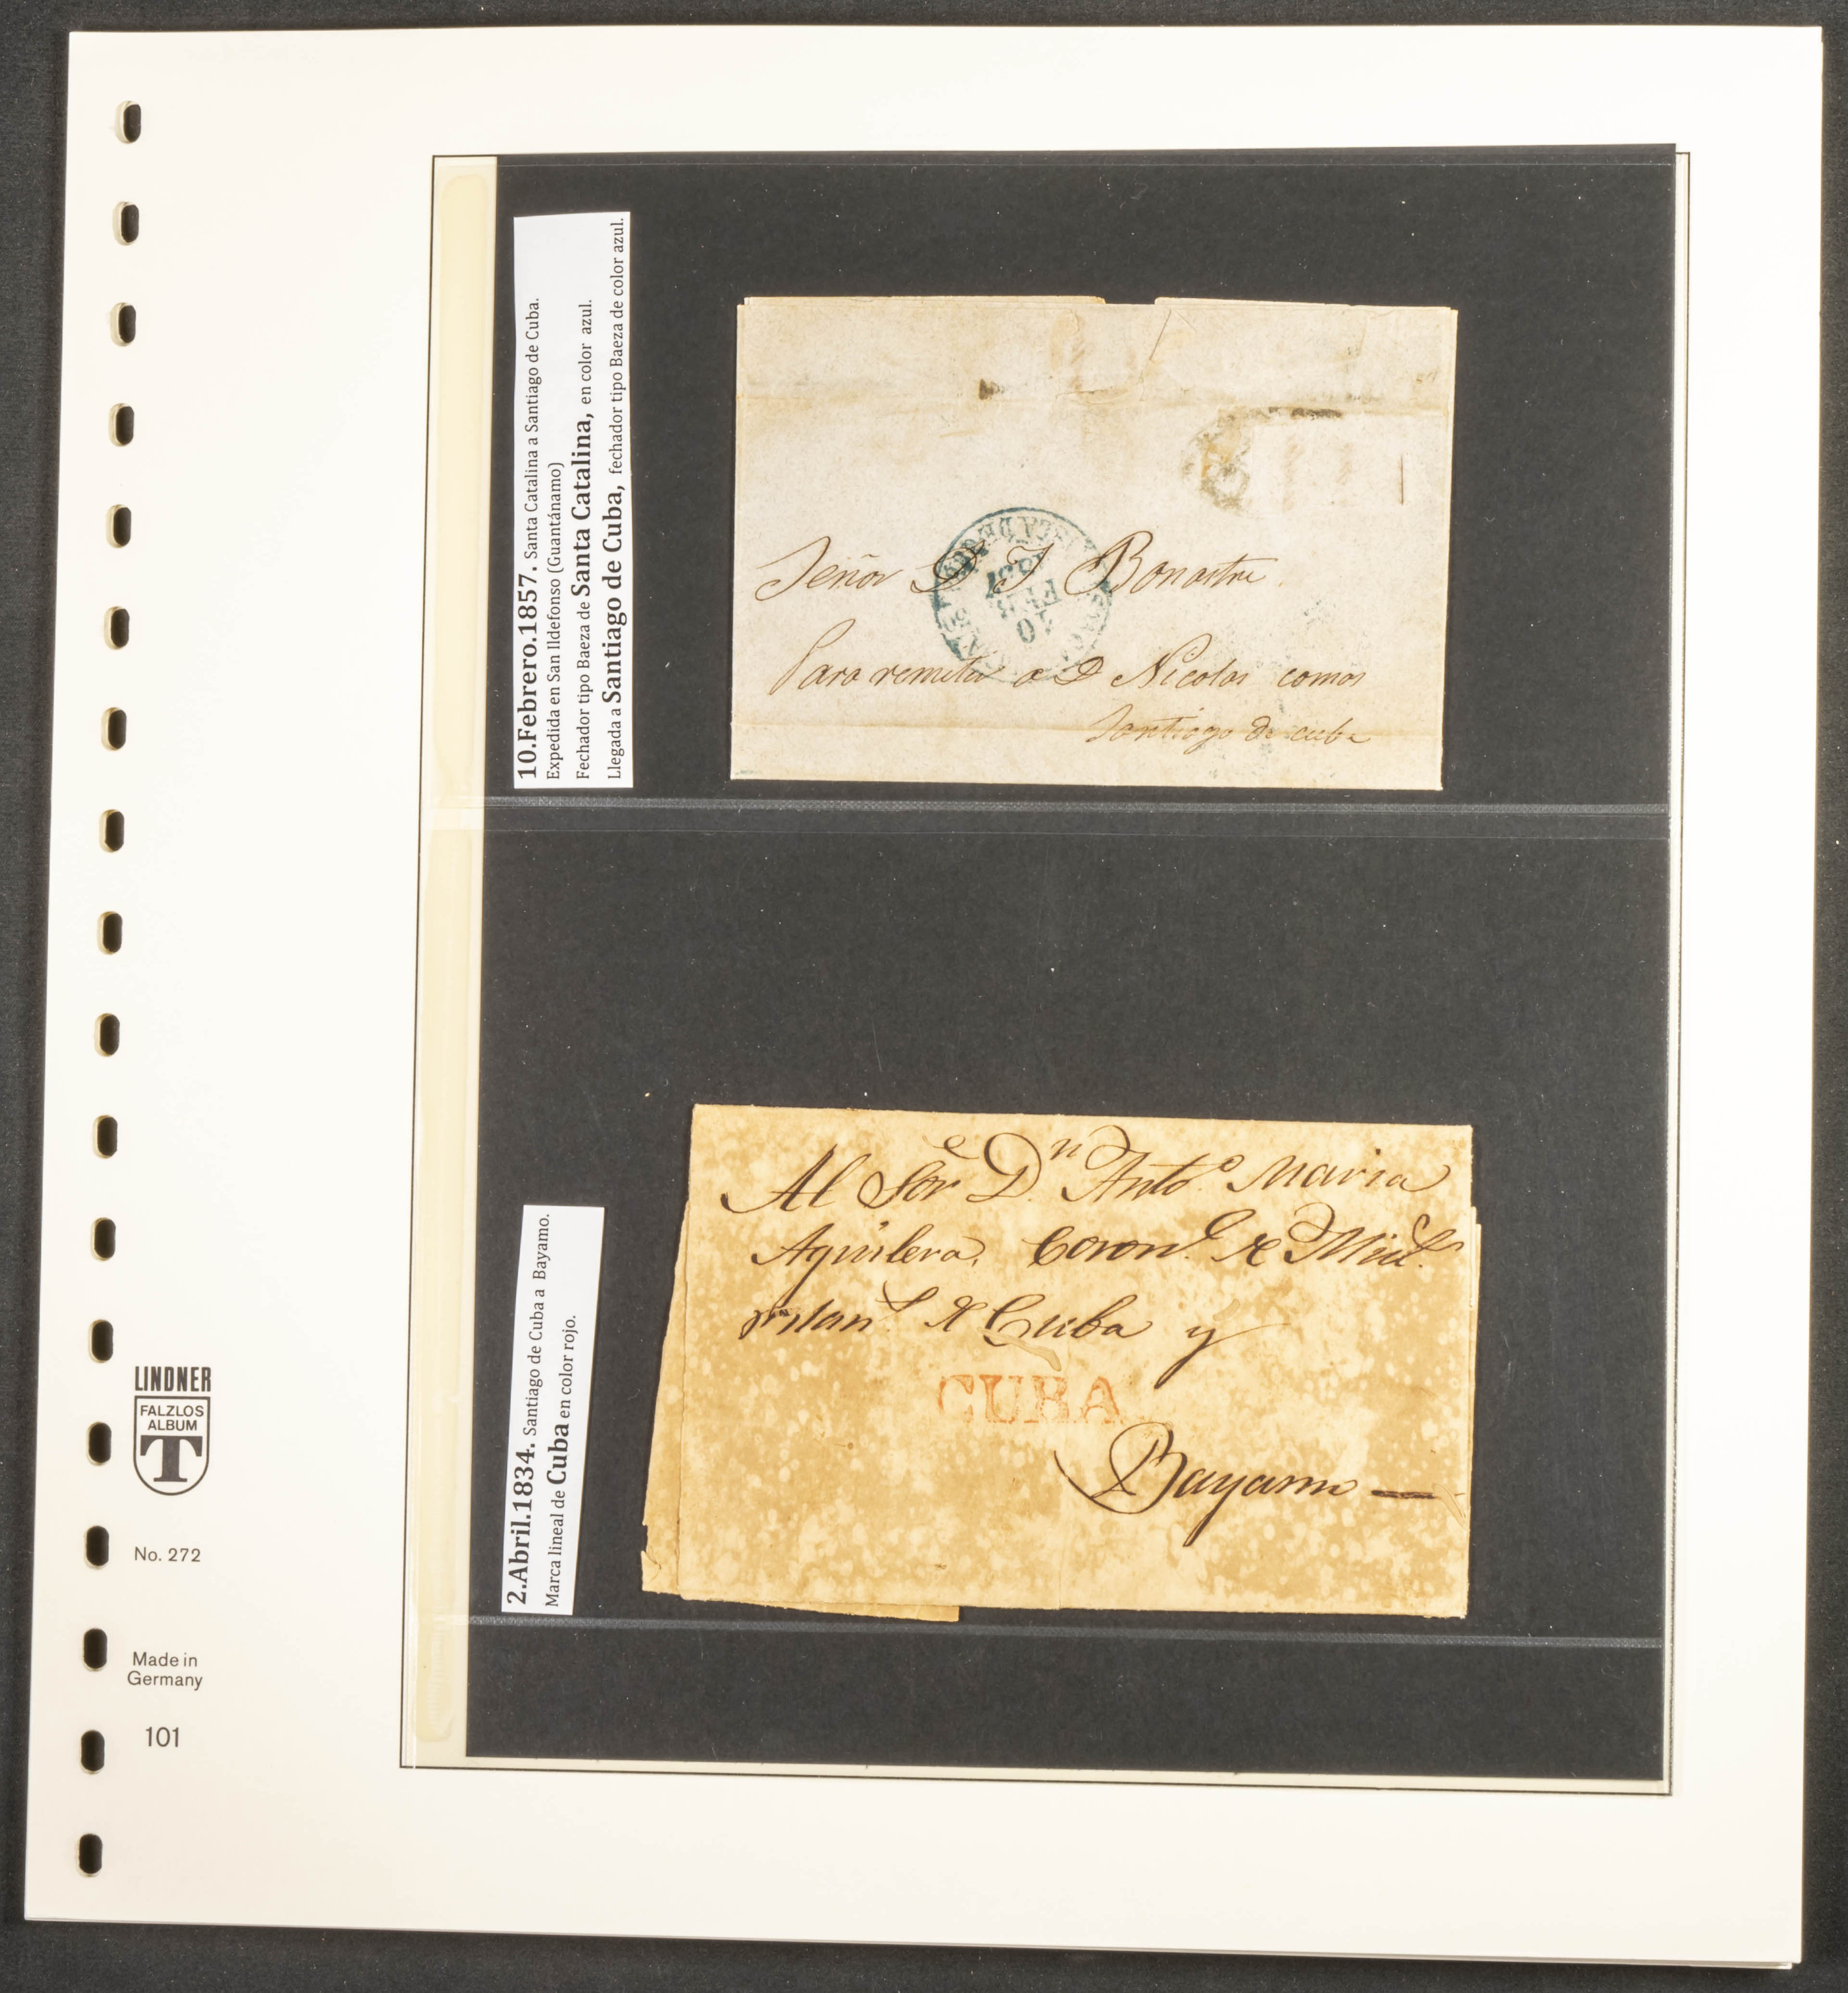 10.Febrero.1857. Santa Catalina a Santiago de Cuba.
Expedida en San Ildefonso (Guantánamo)
Fechador tipo Baeza de Santa Catalina, en color azul.
Llegada a Santiago de Cuba, fechador tipo Baeza de color azul.
10
FEB
1857
Señor D J Bonastre
Para remitir a D Nicolas comas
Santiago de cuba
2.Abril.1834. Santiago de Cuba a Bayamo.
Marca lineal de Cuba en color rojo.
Al Sor Dn Anto Maria
Aguilera, Coronl de
de Cuba y
CUBA
Bayamo
LINDNER
FALZLOS
ALBUM
T
No. 272
Made in
Germany
101